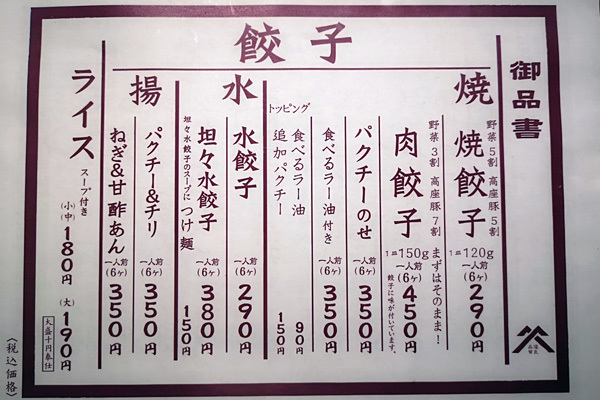 御品書
餃子
焼
野菜5割 高座豚5割
焼餃子
1皿120g
一人前(6ヶ)
290円
野菜3割 高座豚7割
肉餃子
まずはそのまま!
1皿150g
一人前(6ヶ)
450円
餃子に味が付いています。
パクチーのせ
350円
食べるラー油付き
350円
トッピング
食べるラー油
90円
追加パクチー
150円
水
水餃子
一人前(6ヶ)
290円
坦々水餃子
一人前(6ヶ)
380円
坦々水餃子のスープに
つけ麺
150円
揚
パクチー&チリ
一人前(6ヶ)
350円
ねぎ&甘酢あん
一人前(6ヶ)
350円
ライス
スープ付き
(小中)180円
(大)190円
大盛十円奉仕
〈税込価格〉